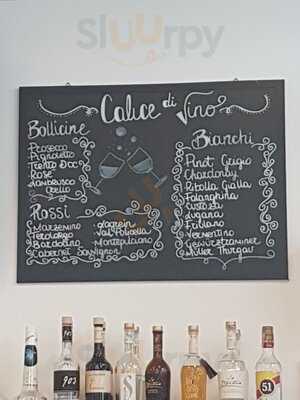 Sluurpy
Calice di Vino
Bollicine
Prosecco
Pignoletto
Trento Doc
Rosè
Lambrusco
Rossi
Marzemino
Teroldego
Bardolino
Cabernet Sauvignon
Lagrein
Valpolicella
Montepulciano
Bianchi
Pinot Grigio
Chardonnay
Ribolla Gialla
Falanghina
Custoza
Lugana
Friulano
Vermentino
Gewürztraminer
Müller Thurgau
903
51